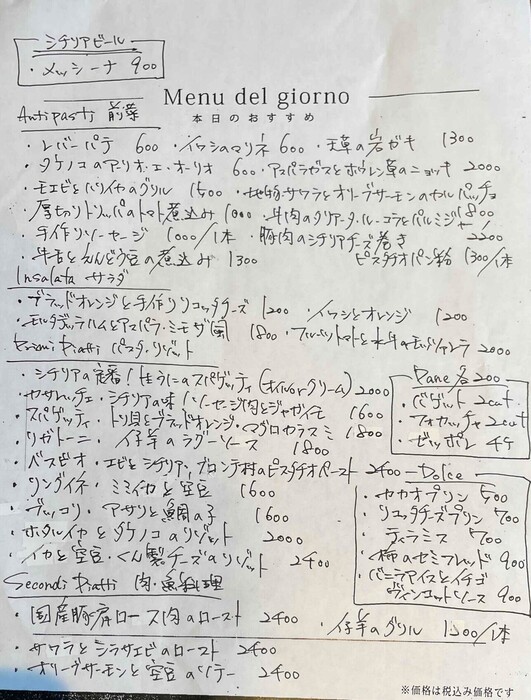 シチリアビール
・メッシーナ 900
Menu del giorno
本日のおすすめ
Antipasti 前菜
・レバーパテ 600 ・イワシのマリネ 600 ・天草の岩ガキ 1300
・タケノコのアーリオ・エ・オーリオ 600 ・アスパラガスとホウレン草のニョッキ 2000
・モエビとバリイカのグリル 1500 ・地物サワラとオリーブサーモンのカルパッチョ
・厚切りトリッパのトマト煮込み 1000 ・牛肉のタリアータ・ルーコラとパルミジャ 1800
・手作りソーセージ 1000/1本 ・豚肉のシチリアチーズ巻き 2200
・牛舌とえんどう豆の煮込み 1300 ピスタチオパン粉 1300/1本
Insalata サラダ
・ブラッドオレンジと手作りリコッタチーズ 1200 ・イワシとオレンジ 1200
・モルタデッラハムとアスパラ・ミモザ風 1800 ・フルーツトマトと水牛のモッツァレラ 2000
Primi Piatti パスタ・リゾット
・シチリアの定番!生うにのスパゲッティ(オイルorクリーム) 2000
・カサレッチェ・シチリアの味!ソーセージ肉とジャガイモ 1600
・スパゲッティ・トリ貝とブラッドオレンジ・マグロカラスミ 1800
・リガトーニ・仔羊のラグーソース 1800
・ベスビオ・エビとシチリア、ブロンテ村のピスタチオペースト 2400
・リングイネ・ミミイカと空豆 1600
・ブッコリ・アサリと鯛の子 1600
・ホタルイカとタケノコのリゾット 2000
・イカと空豆・くん製チーズのリゾット 2400
Pane 各200
・バゲット 2cut
・フォカッチャ 2cut
・ゼッポレ 4ケ
Dolce
・カカオプリン 500
・リコッタチーズプリン 700
・ティラミス 700
・柿のセミフレッド 900
・バニラアイスとイチゴ
ヴィンコットソース 900
Secondi Piatti 肉・魚料理
・国産豚肩ロース肉のロースト 2400 ・仔羊のグリル 1200/1本
・サワラとシラサエビのロースト 2400
・オリーブサーモンと空豆のソテー 2400
※価格は税込み価格です